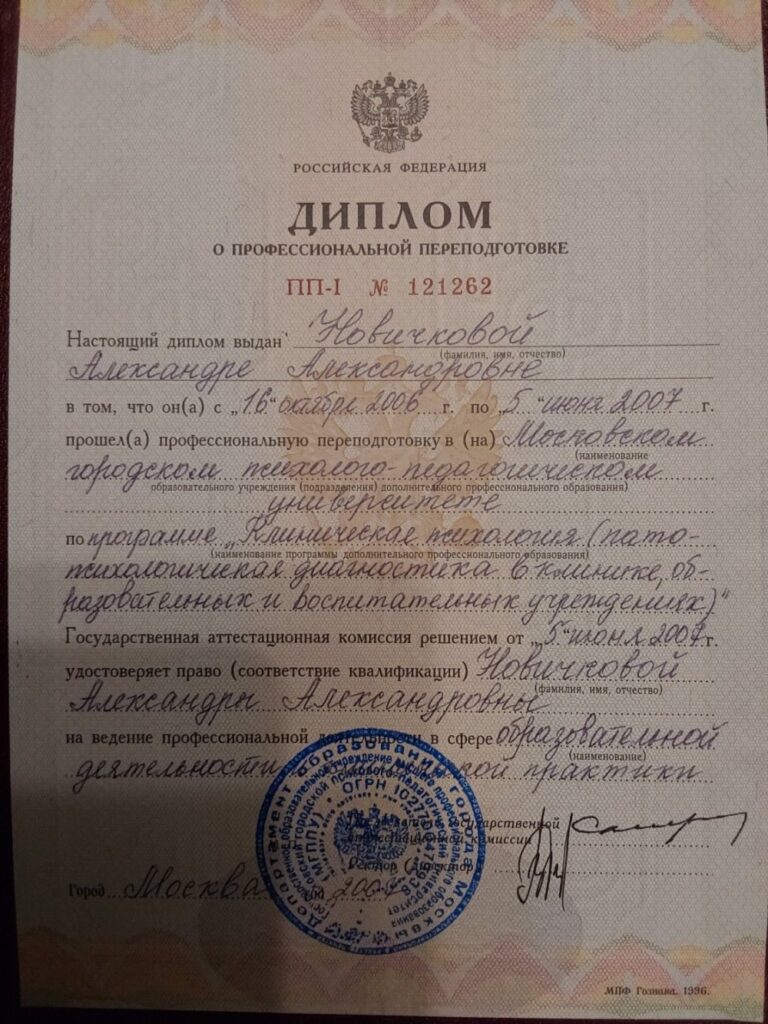 РОССИЙСКАЯ ФЕДЕРАЦИЯ
ДИПЛОМ
О ПРОФЕССИОНАЛЬНОЙ ПЕРЕПОДГОТОВКЕ
ПП-I № 121262
Настоящий диплом выдан Новичковой
(фамилия, имя, отчество)
Александре Александровне
в том, что он(а) с „16“ октября 2006 г. по „5“ июня 2007 г.
прошел(а) профессиональную переподготовку в (на) Московском
(наименование
городском психолого-педагогическом
образовательного учреждения (подразделения) дополнительного профессионального образования)
университете
по программе „Клиническая психология (пато-
(наименование программы дополнительного профессионального образования)
психологическая диагностика в клинике, об-
разовательных и воспитательных учреждениях)“
Государственная аттестационная комиссия решением от „5“ июня 2007 г.
удостоверяет право (соответствие квалификации) Новичковой
(фамилия, имя, отчество)
Александры Александровны
на ведение профессиональной деятельности в сфере образовательной
(наименование)
деятельности, практики
государственной
аттестационной комиссии
Ректор (директор)
Город Москва 2007
Департамент образования города Москвы
ОГРН
(МГППУ)
МПФ Гознака. 1996.